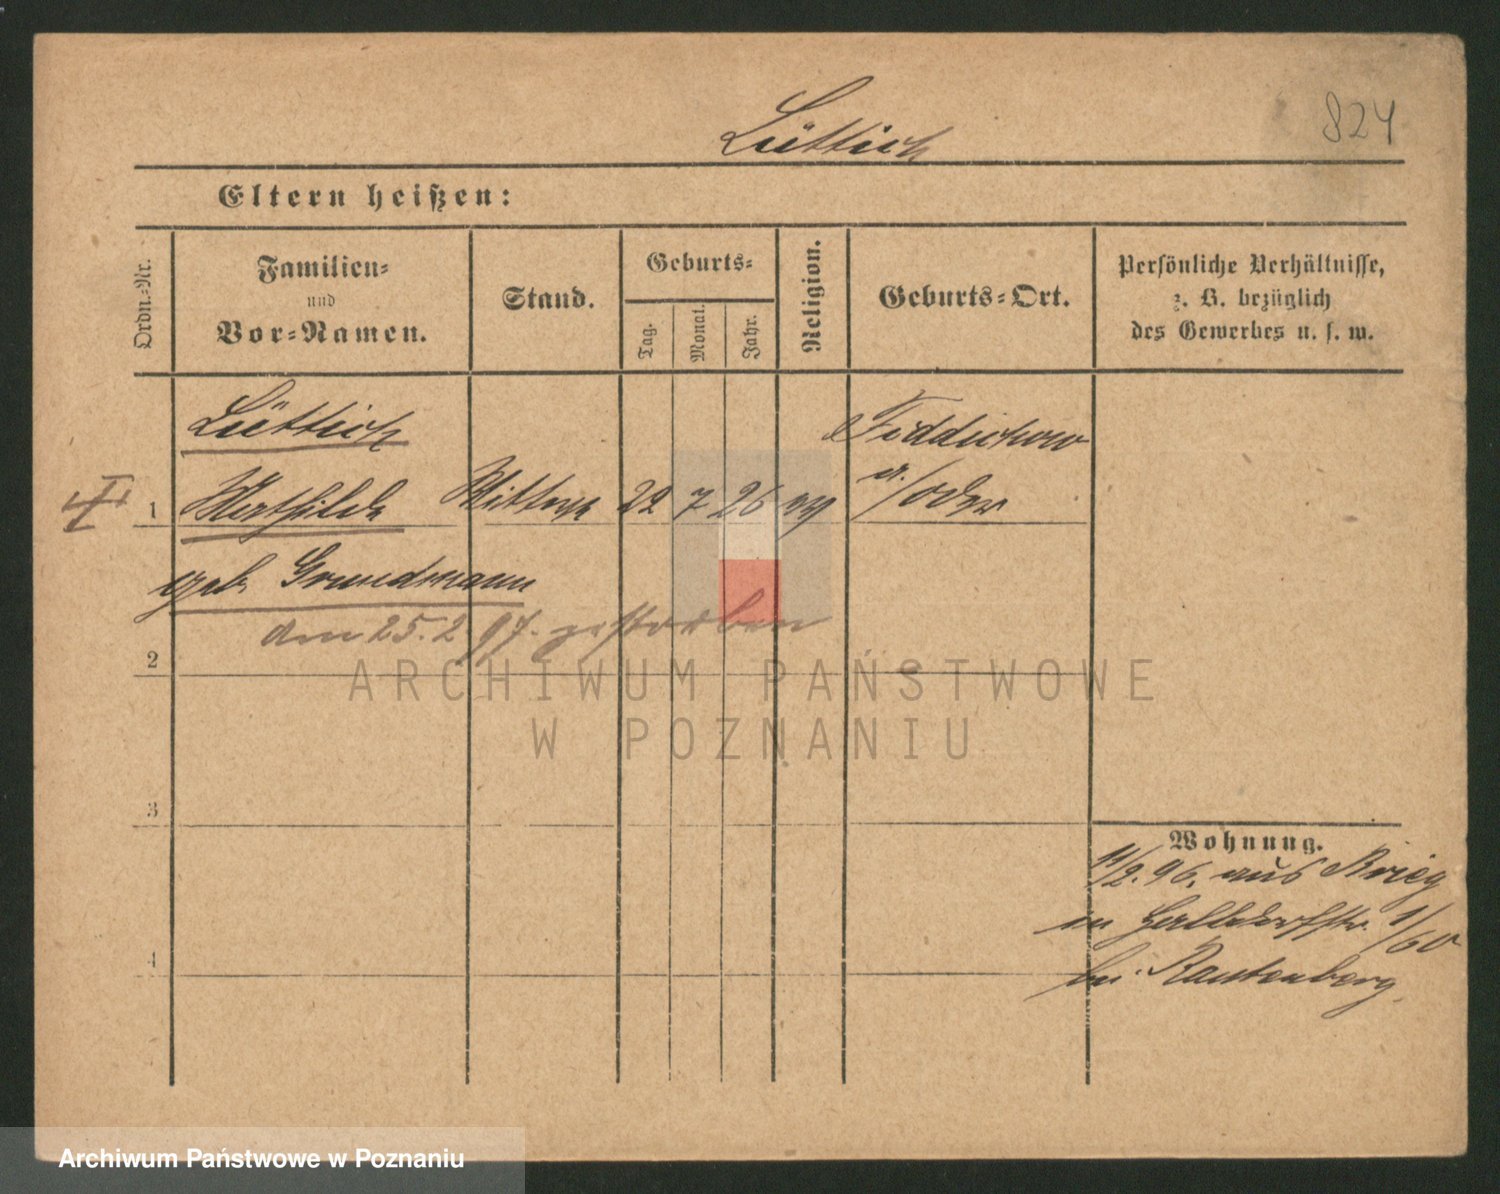 824
Lüttich
Eltern heißen:
Ordn.-Nr.
Familien-
und
Vor-Namen.
Stand.
Geburts-
Tag.
Monat.
Jahr.
Religion.
Geburts-Ort.
Persönliche Verhältnisse,
z. B. bezüglich
des Gewerbes u. s. w.
Lüttich
1 Mathilde Wittwe 22 7 26 ev
Fiddichow
a./Oder
geb. Grundmann
den 25. 2 97. gestorben
2
3
4
Wohnung.
11/2. 96. aus Brieg
in 1/60
bei Rautenberg
ARCHIWUM PAŃSTWOWE
W POZNANIU
Archiwum Państwowe w Poznaniu